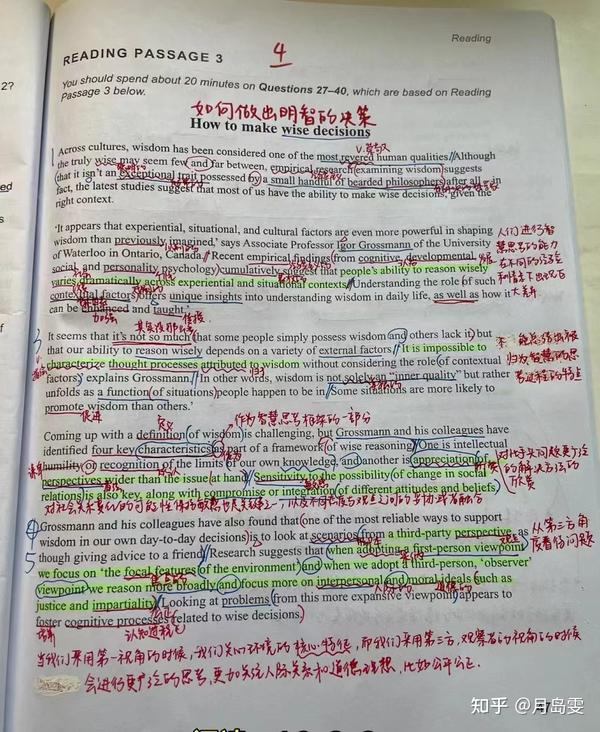 Reading
READING PASSAGE 3
4
2?
You should spend about 20 minutes on Questions 27–40, which are based on Reading
Passage 3 below.
如何做出明智的决策
How to make wise decisions
Across cultures, wisdom has been considered one of the most revered human qualities. Although
the truly wise may seem few and far between, empirical research examining wisdom suggests
that it isn't an exceptional trait possessed by a small handful of bearded philosophers after all – in
fact, the latest studies suggest that most of us have the ability to make wise decisions, given the
right context.
'It appears that experiential, situational, and cultural factors are even more powerful in shaping
wisdom than previously imagined,' says Associate Professor Igor Grossmann of the University
of Waterloo in Ontario, Canada. 'Recent empirical findings from cognitive, developmental,
social, and personality psychology cumulatively suggest that people's ability to reason wisely
varies dramatically across experiential and situational contexts. Understanding the role of such
contextual factors offers unique insights into understanding wisdom in daily life, as well as how it
can be enhanced and taught.'
人们进行智
慧思考的能力
在不同的经验
和情境下出现百
大差异
3
It seems that it's not so much that some people simply possess wisdom and others lack it, but
that our ability to reason wisely depends on a variety of external factors. 'It is impossible to
characterize thought processes attributed to wisdom without considering the role of contextual
factors,' explains Grossmann. 'In other words, wisdom is not solely an "inner quality" but rather
unfolds as a function of situations people happen to be in. Some situations are more likely to
promote wisdom than others.'
促进
定义
作为智慧思考框架的一部分
Coming up with a definition of wisdom is challenging, but Grossmann and his colleagues have
identified four key characteristics as part of a framework of wise reasoning. One is intellectual
humility or recognition of the limits of our own knowledge, and another is appreciation of
perspectives wider than the issue at hand. Sensitivity to the possibility of change in social
relations is also key, along with compromise or integration of different attitudes and beliefs.
的解决方法的
欣赏
4
5
Grossmann and his colleagues have also found that one of the most reliable ways to support
wisdom in our own day-to-day decisions is to look at scenarios from a third-party perspective, as
though giving advice to a friend. Research suggests that when adopting a first-person viewpoint
we focus on 'the focal features of the environment' and when we adopt a third-person, 'observer'
viewpoint we reason more broadly and focus more on interpersonal and moral ideals such as
justice and impartiality. Looking at problems from this more expansive viewpoint appears to
foster cognitive processes related to wise decisions.
从第三方角
度看待问题
培养
认知过程
当我们采用第一视角的时候,我们关心环境的核心特征,而当我们采用第三方,观察者的视角的时候
会进行更广泛的思考,更加关注人际关系和道德理想,比如公平公正.
知乎 @月岛雯